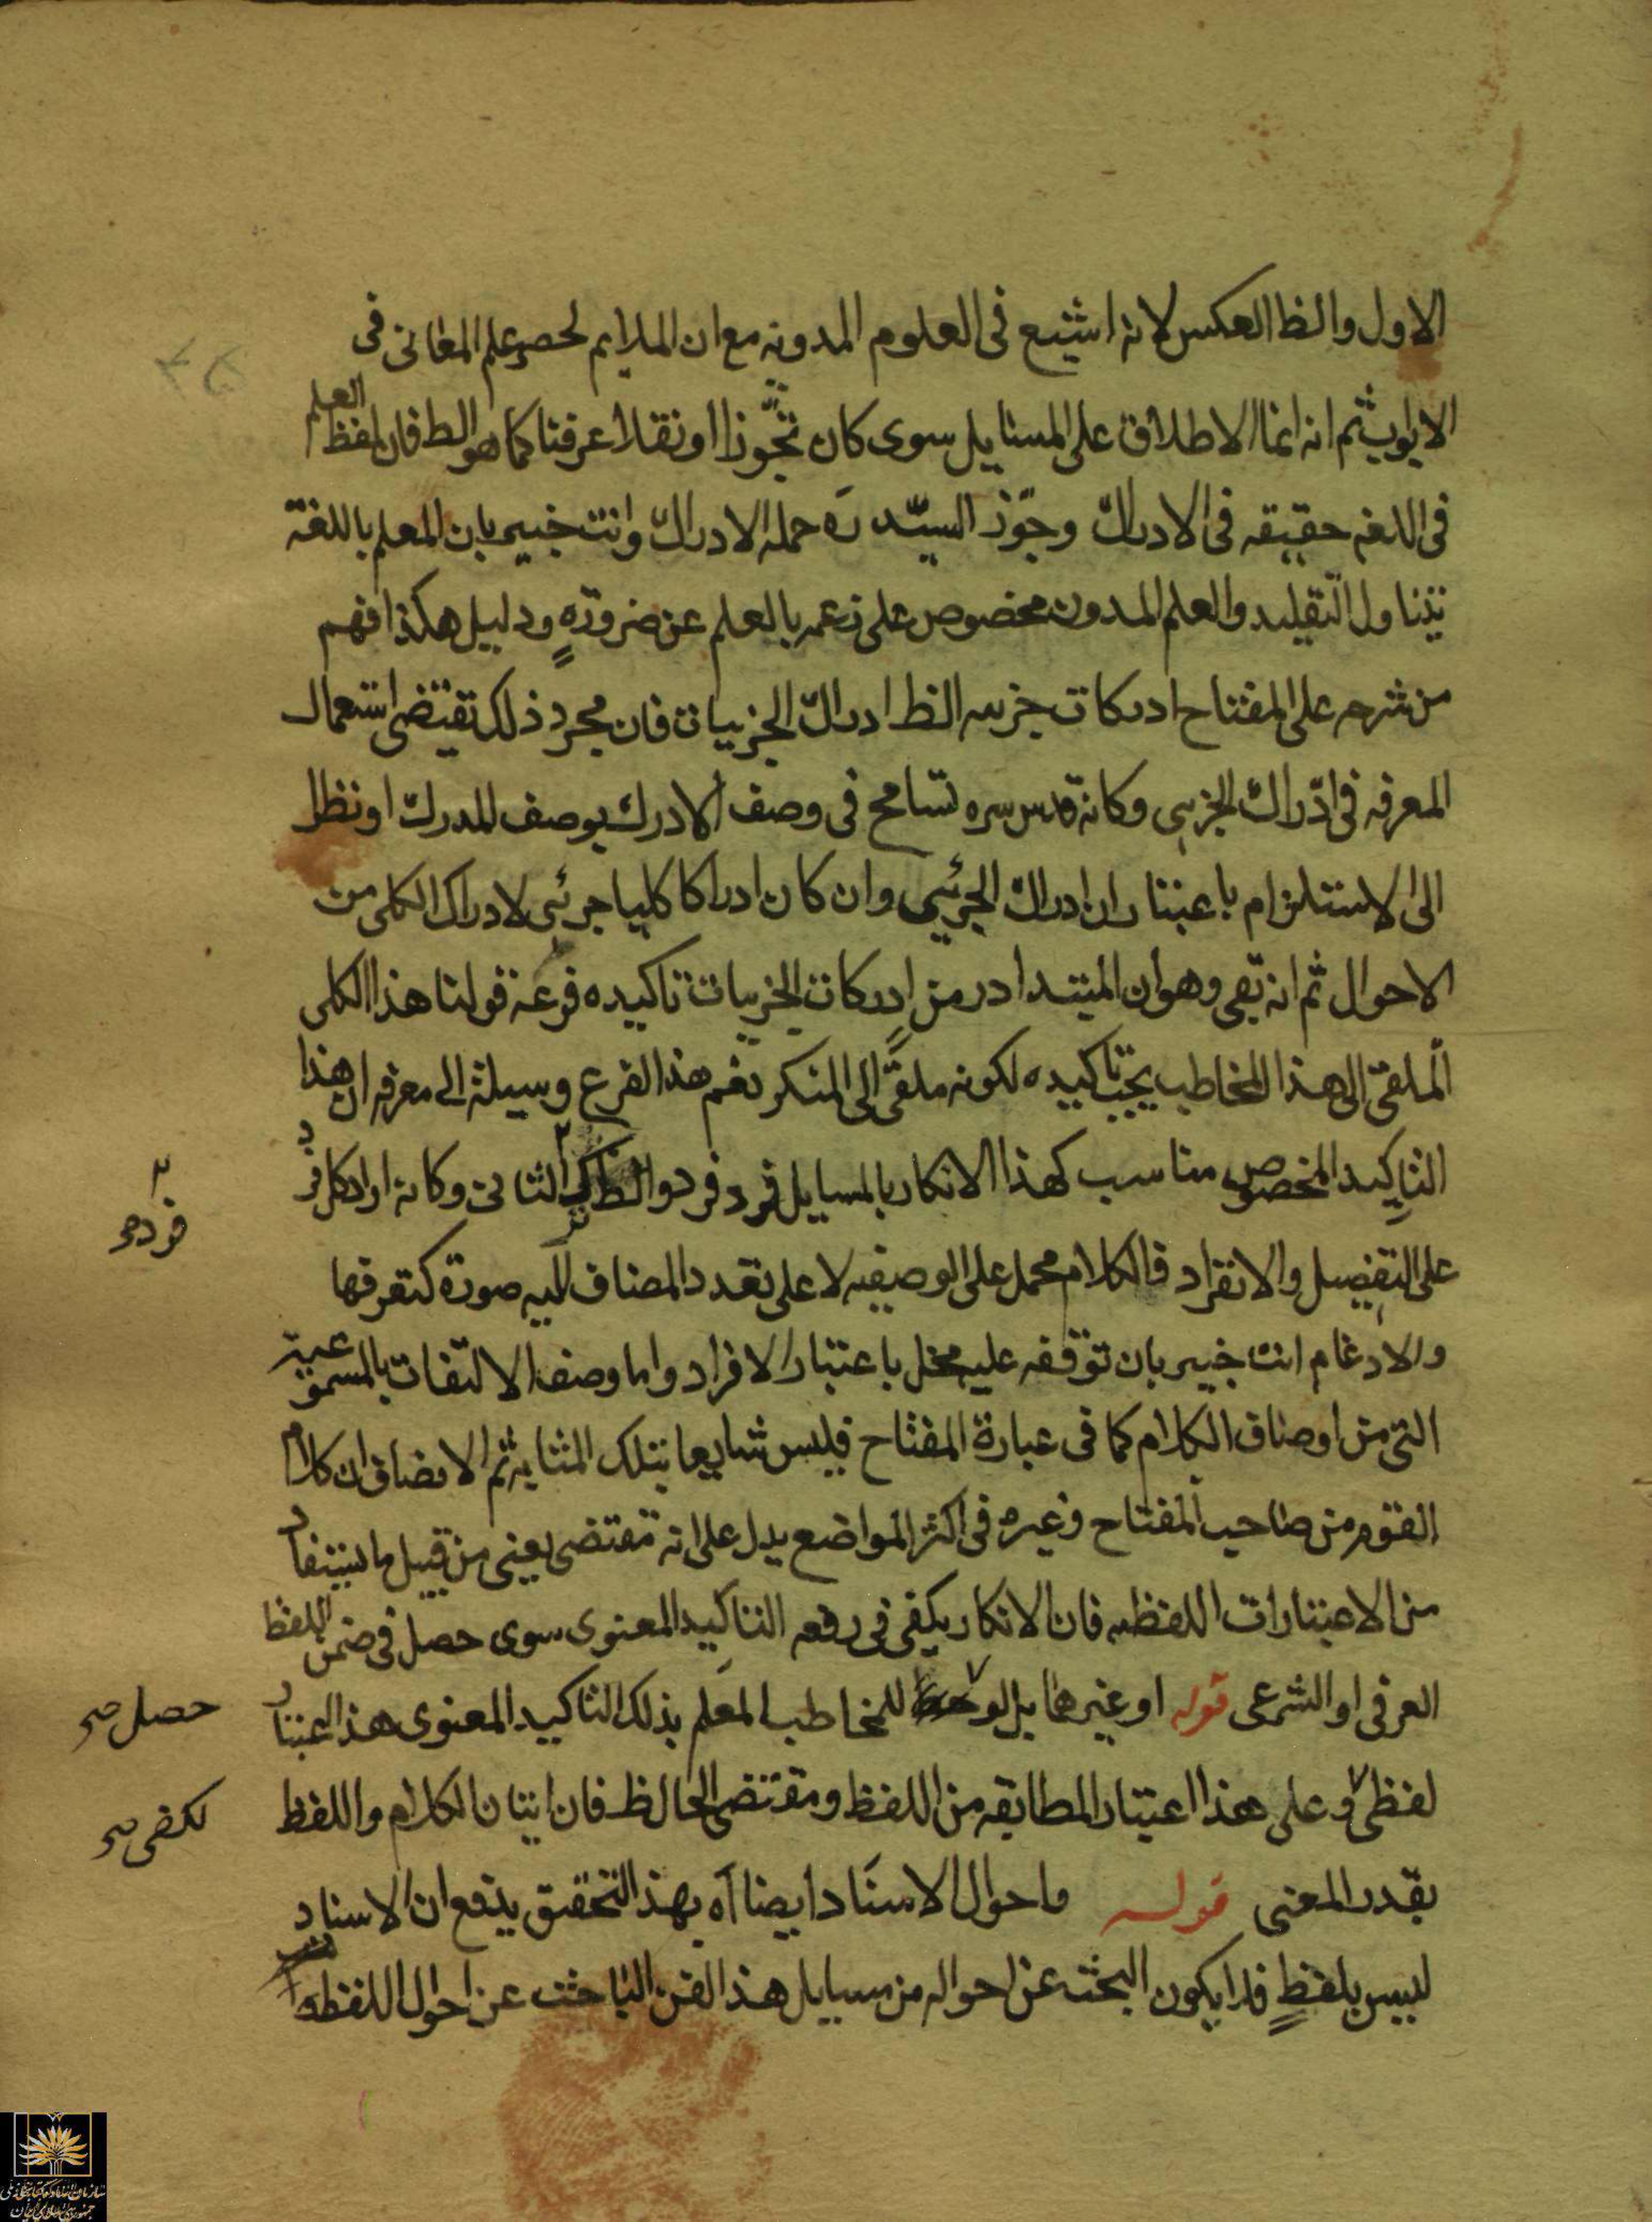 الاول والظ العكس لانه اشيع فى العلوم المدونه مع ان الملايم لحصر علم المعانى فى
الابواب ثم انه انما الاطلاق على المسايل سوى كان تجوزا او نقلا عرفنا كما هو الظ فان لفظ العلم
فى اللغه حقيقه فى الادراك وجوّز السيّد ره حمله الادراك وانت خبير بان العلم باللغة
يتناول التقليد والعلم المدون مخصوص على زعمه بالعلم عن ضرورةٍ ودليل هكذا فهم
من شرحه على المفتاح ادركات جزييه الظ ادراك الجزييات فان مجرد ذلك تقتضى استعمال
المعرفه فى ادراك الجزيى وكانه قدس سره تسامح فى وصف الادرك بوصف المدرك او نظر
الى الاستلزام باعتبار ان ادراك الجزئيى وان كان ادراكا كليا جزئيى لادراك الكلى من
الاحوال ثم انه بقى وهو ان المبتدا در من ادركات الجزييات تاكيده فرعه قولنا هذا الكلى
الملقى الى هذا المخاطب يجب تاكيده لكونه ملقىً الى المنكر نعم هذا الفرع وسيلة الى معرفه ان هذا
التاكيد المخصوص مناسب كهذا الانكار بالمسايل فرد فرد والظ الثانى وكانه اراد كل فرد
على التفصيل والانفراد فالكلام محمل على الوصيفيه لا على تعدد المضاف اليه صورة كتعرفها
والادغام انت خبير بان توقفه عليه مخل باعتبار الافراد واما وصف الالتفات بالمسموعية
التى من اوصاف الكلام كما فى عبارة المفتاح فليس شايعا بتلك المثابه ثم الانصاف ان كلام
القوم من صاحب المفتاح وغيره فى اكثر المواضع يدل على انه مقتضى يعنى من قبيل ما يستفاد
من الاعتبارات اللفظيه فان الانكار يكفى فى رفعه التاكيد المعنوى سوى حصل فى ضمن اللفظ
العرفى او الشرعى قوله او غيرهما بل لو للمخاطب العلم بذلك التاكيد المعنوى هذا اعتبار
حصل صح
لفظى وعلى هذا اعتبار المطابقه من اللفظ ومقتضى الحال ظ فان اتيان الكلام واللفظ
لكفى صح
بقدر المعنى قوله واحوال الاسناد ايضا آه بهذا التحقيق يندفع ان الاسناد
ليس بلفظٍ فلا يكون البحث عن احواله من مسايل هذا الفن الباحث عن احوال اللفظ